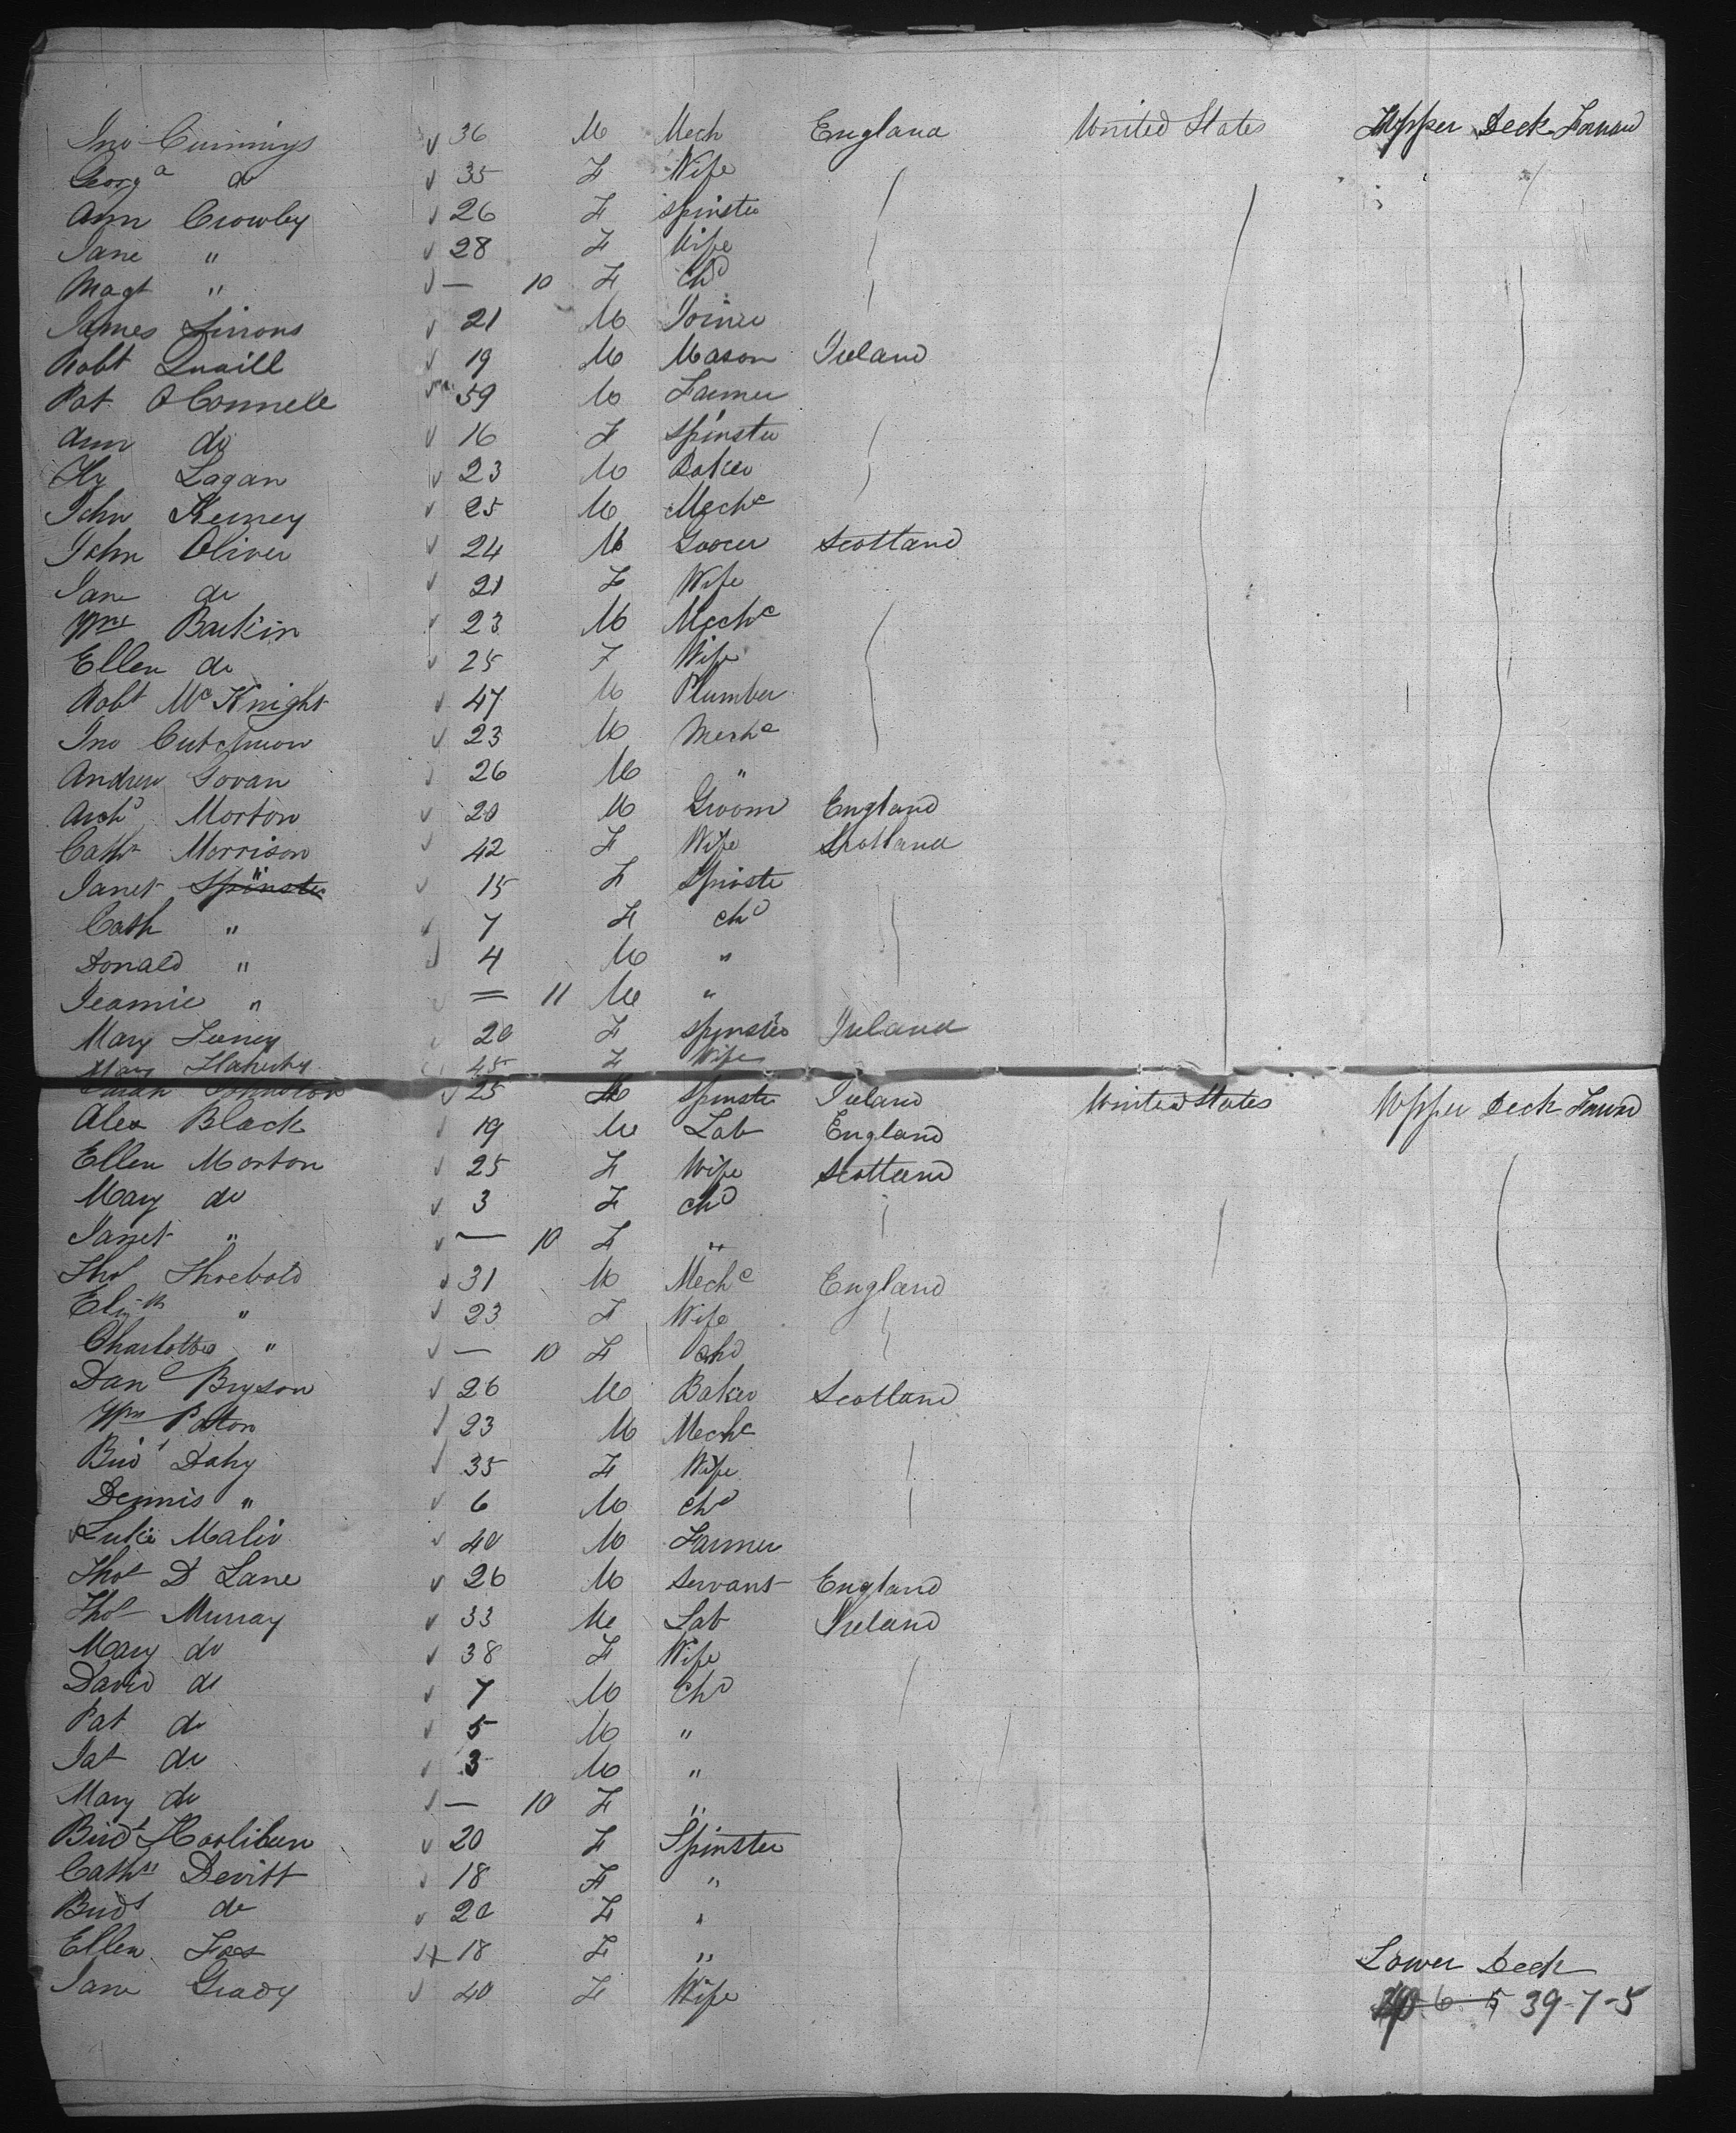 Jno Cummings 36 M Mech England United States Upper Deck Forward
Georga do 35 F Wife
Ann Crowley 26 F Spinster
Jane " 28 F Wife
Magt " — 10 F Chd
James Simons 21 M Joiner
Robt Quaill 19 M Mason Ireland
Pat O Connell 59 M Farmer
Ann do 16 F Spinster
Hy Lagan 23 M Baker
John Kerney 25 M Mechc
John Oliver 24 M Grocer Scotland
Jane do 21 F Wife
Wm Barkin 23 M Mechc
Ellen do 25 F Wife
Robt McKnight 47 M Plumber
Jno 23 M Mechc
Andrew Govan 26 M "
Archd Morton 20 M Groom England
Cathn Morrison 42 F Wife Scotland
Janet Spinster " 15 F Spinster
Cath " 7 F Chd
Donald " 4 M "
Jeamie " = 11 M "
Mary 20 F Spinster Ireland
Mary Flaherty 45 F Wife
Sarah Johnston 25 Spinster Ireland United States Upper Deck Forward
Alex Black 19 M Lab England
Ellen Morton 25 F Wife Scotland
Mary do 3 F Chd
Janet " — 10 F "
Thos Thoebold 31 M Mechc England
Elizth " 23 F Wife
Charlotte " — 10 F Chd
Danl Bryson 26 M Baker Scotland
Wm Paton 23 M Mechc
Bridt Dahy 35 F Wife
Dennis " 6 M Chd
Luke Malio 40 M Farmer
Thos D Lane 26 M Servant England
Thos Murray 33 M Lab Ireland
Mary do 38 F Wife
David do 7 M Chd
Pat do 5 M "
Jas do 3 M "
Mary do — 10 F "
Bridt 20 F Spinster
Cathn Devitt 18 F "
Bridt do 20 F "
Ellen Fox 18 F " Lower Deck
Jane Grady 40 F Wife 39-7-5